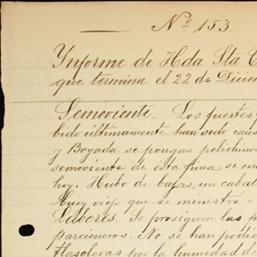 Nº 153.
Informe de Hda Sta C
que termina el 22 de Dicie
Semoviente. Los fuertes
bido últimamente han sido caus
y Boyada se pongan pelechin
semoviente de esta finca se en
hoy. Hubo de bajas, un caball
buey viejo que se ministró a
Labores. Se prosiguen las
parcioneros. No se han podid
tlasoleras por la humedad d